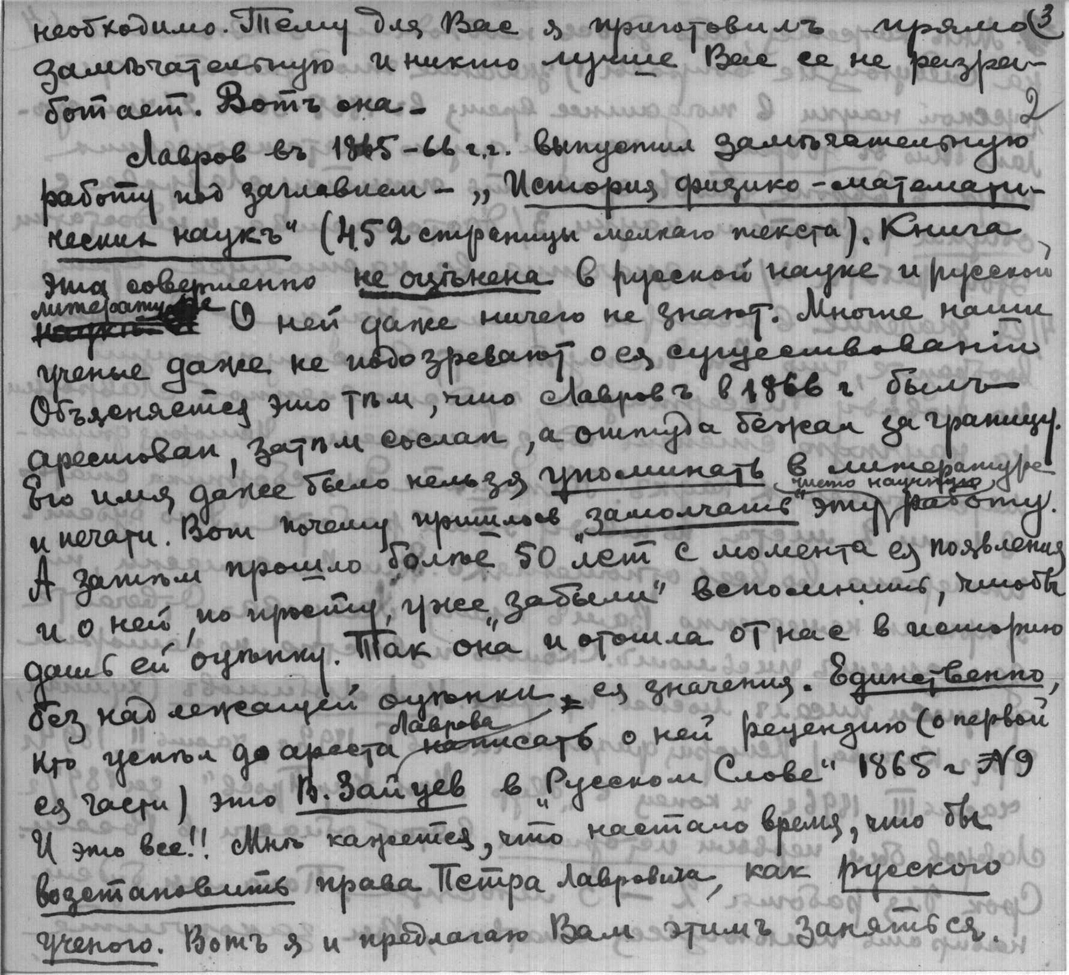 необходимо. Тему для Вас я приготовилъ прямо (3
замѣчательную и никто лучше Вас ее не разра-
ботает. Вотъ она – 2
Лавров въ 1865–66 г.г. выпустил замѣчательную
работу под заглавием – „История физико-математи-
ческих наукъ“ (452 страницы мелкаго текста). Книга
эта совершенно не оцѣнена в русской науке и русской
литературе О ней даже ничего не знают. Многие наши
ученые даже не подозревают о ея существованiи
Объясняется это тѣм, что Лавровъ в 1866 г былъ
арестован, затѣм сослан, а оттуда бежал за границу.
Его имя даже было нельзя упоминать в литературе
и печати. Вот почему пришлось „замолчать“ эту чисто научную работу.
А затѣм прошло болѣе 50 лет с момента ея появления
и о ней, по просту, уже „забыли“ вспомнить, чтобы
дать ей оцѣнку. Так она и отошла от нас в историю
без надлежащей оцѣнки ея значения. Единственно,
кто успѣл до ареста Лаврова написать о ней рецензию (о первой
ея части) это В. Зайцев в „Русском Слове“ 1865 г № 9
И это все!! Мнѣ кажется, что настало время, что бы
возстановить права Петра Лавровича, как русского
ученого. Вотъ я и предлагаю Вам этимъ заняться.